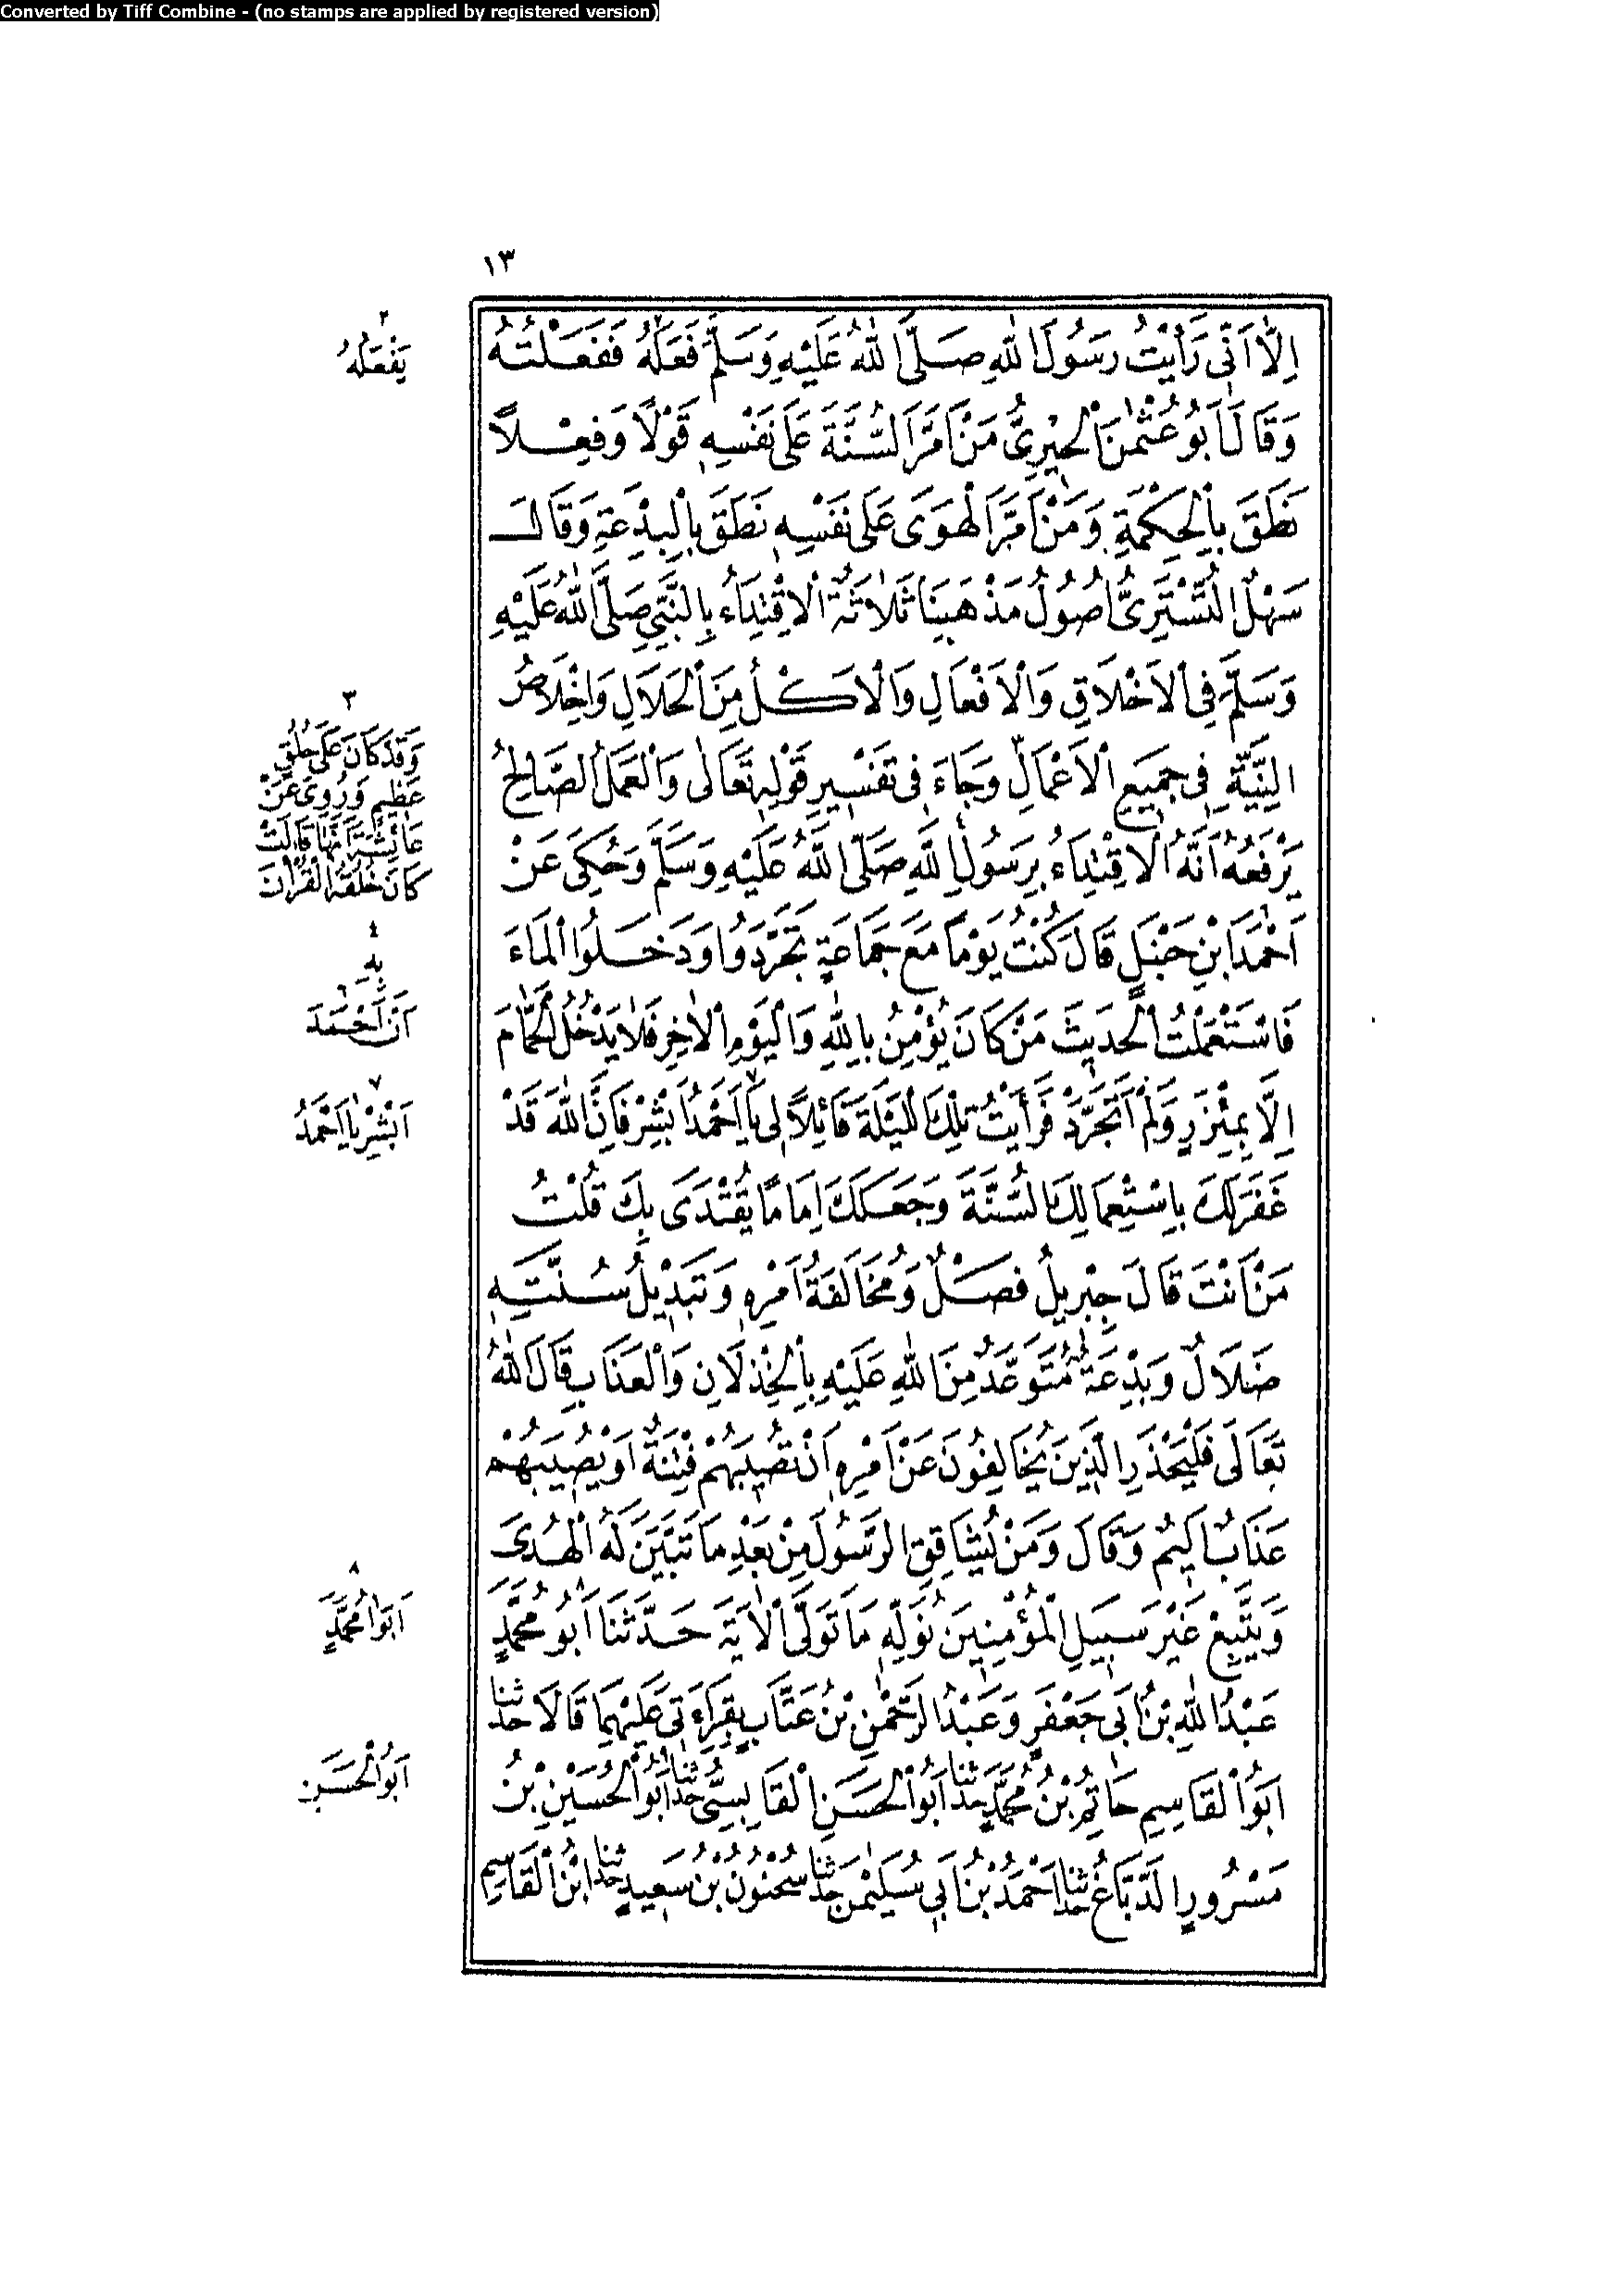 Converted by Tiff Combine - (no stamps are applied by registered version)
١٣
اِلَّا اَنّٖى رَأَيْتُ رَسُولَ اللهِ صَلَّى اللهُ عَلَيْهِ وَسَلَّمَ فَعَلَهُ فَفَعَلْتُهُ
وَقَالَ اَبُو عُثْمٰنَ الْحٖيرِىُّ مَنْ اَمَّرَ السُّنَّةَ عَلَى نَفْسِهٖ قَوْلًا وَفِعْلًا
نَطَقَ بِالْحِكْمَةِ وَمَنْ اَمَّرَ الْهَوَى عَلَى نَفْسِهٖ نَطَقَ بِالْبِدْعَةِ وَقَالَ
سَهْلٌ التُّسْتَرِىُّ اُصُولُ مَذْهَبِنَا ثَلَاثَةٌ الْاِقْتِدَاءُ بِالنَّبِىِّ صَلَّى اللهُ عَلَيْهِ
وَسَلَّمَ فِى الْاَخْلَاقِ وَالْاَفْعَالِ وَالْاَكْلُ مِنَ الْحَلَالِ وَاِخْلَاصُ
النِّيَّةِ فِى جَمٖيعِ الْاَعْمَالِ وَجَاءَ فِى تَفْسٖيرِ قَوْلِهٖ تَعَالٰى وَالْعَمَلُ الصَّالِحُ
يَرْفَعُهُ اَنَّهُ الْاِقْتِدَاءُ بِرَسُولِ اللهِ صَلَّى اللهُ عَلَيْهِ وَسَلَّمَ وَحُكِىَ عَنْ
اَحْمَدَ ابْنِ حَنْبَلٍ قَالَ كُنْتُ يَوْمًا مَعَ جَمَاعَةٍ تَجَرَّدُوا وَدَخَلُوا الْمَاءَ
فَاسْتَعْمَلْتُ الْحَدٖيثَ مَنْ كَانَ يُؤْمِنُ بِاللهِ وَالْيَوْمِ الْاٰخِرِ فَلَا يَدْخُلِ الْحَمَّامَ
اِلَّا بِمِئْزَرٍ وَلَمْ اَتَجَرَّدْ فَرَأَيْتُ تِلْكَ اللَّيْلَةَ قَائِلًا لٖى يَا اَحْمَدُ اَبْشِرْ فَاِنَّ اللهَ قَدْ
غَفَرَ لَكَ بِاسْتِعْمَالِكَ السُّنَّةَ وَجَعَلَكَ اِمَامًا يُقْتَدَى بِكَ قُلْتُ
مَنْ اَنْتَ قَالَ جِبْرٖيلُ فَصْلٌ وَمُخَالَفَةُ اَمْرِهٖ وَتَبْدٖيلُ سُنَّتِهٖ
ضَلَالٌ وَبِدْعَةٌ مُتَوَعَّدٌ مِنَ اللهِ عَلَيْهِ بِالْخِذْلَانِ وَالْعَذَابِ قَالَ اللهُ
تَعَالَى فَلْيَحْذَرِ الَّذٖينَ يُخَالِفُونَ عَنْ اَمْرِهٖ اَنْ تُصٖيبَهُمْ فِتْنَةٌ اَوْ يُصٖيبَهُمْ
عَذَابٌ اَلٖيمٌ وَقَالَ وَمَنْ يُشَاقِقِ الرَّسُولَ مِنْ بَعْدِ مَا تَبَيَّنَ لَهُ الْهُدَى
وَيَتَّبِعْ غَيْرَ سَبٖيلِ الْمُؤْمِنٖينَ نُوَلِّهٖ مَا تَوَلَّى الْاٰيَةَ حَدَّثَنَا اَبُو مُحَمَّدٍ
عَبْدُ اللهِ بْنُ اَبٖى جَعْفَرٍ وَعَبْدُ الرَّحْمٰنِ بْنُ عَتَّابٍ بِقِرَاءَتٖى عَلَيْهِمَا قَالَا حَدَّثَنَا
اَبُو الْقَاسِمِ حَاتِمُ بْنُ مُحَمَّدٍ حَدَّثَنَا اَبُو الْحَسَنِ الْقَابِسِىُّ حَدَّثَنَا اَبُو الْحُسَيْنِ بْنُ
مَسْرُورٍ الدَّبَّاغُ حَدَّثَنَا اَحْمَدُ بْنُ اَبٖى سُلَيْمٰنَ حَدَّثَنَا سُحْنُونُ بْنُ سَعٖيدٍ حَدَّثَنَا ابْنُ الْقَاسِمِ
٢
يَفْعَلُهُ
٣
وَقَدْ كَانَ عَلَى خُلُقٍ
عَظٖيمٍ وَرُوِىَ عَنْ
عَائِشَةَ اَنَّهَا قَالَتْ
كَانَ خُلُقُهُ الْقُرْاٰنَ
٤
بِهٖ
٦
اَنَّ اَحْمَدَ
٧
اَبْشِرْ يَا اَحْمَدُ
٨
اَبَوَا مُحَمَّدٍ
اَبُو الْحَسَنِ